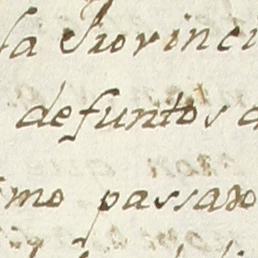 sa Provinci
defuntos d
imo passado